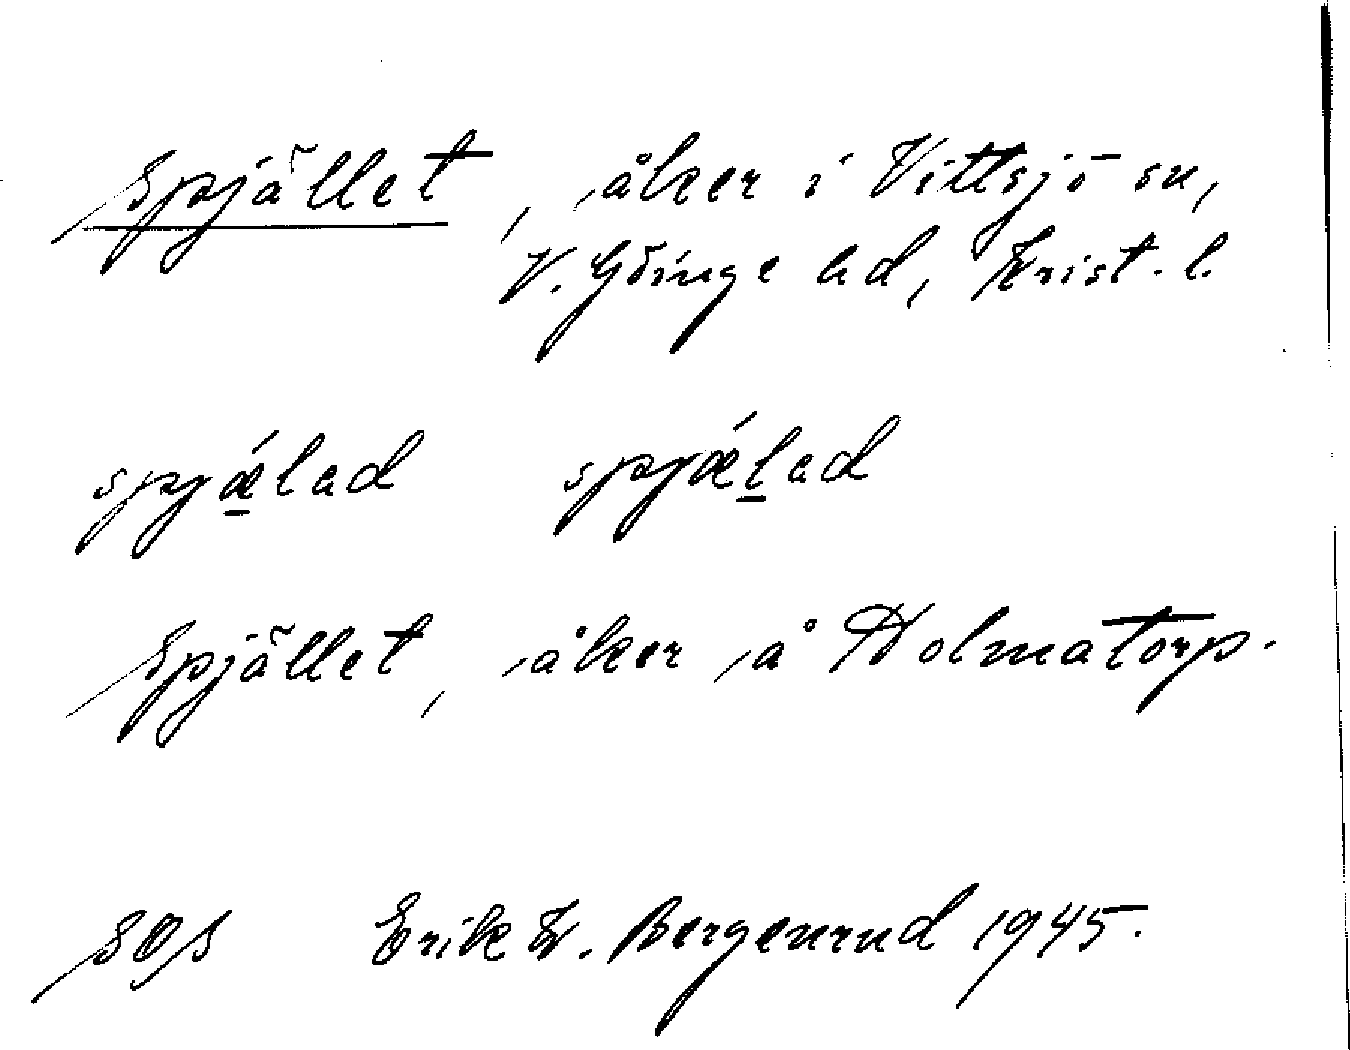 Spjället, åker i Vittsjö sn,
V. Göinge hd, Krist. l.
spjǽlad spjǽlad
Spjället, åker å Holmatorp.
SOS Erik K. Bergenrud 1945.